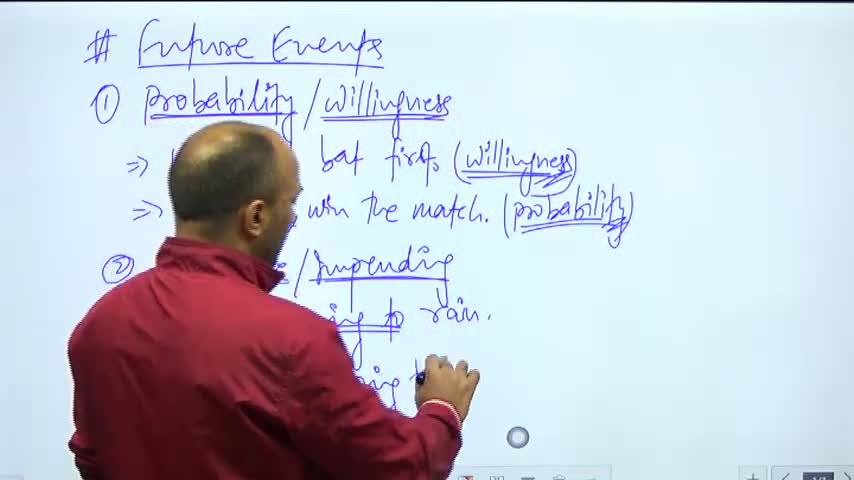 # Future Events
① probability / willingness
⇒ bat first. (willingness)
⇒ win the match. (probability)
② / Impending
ing to rain.
ing t